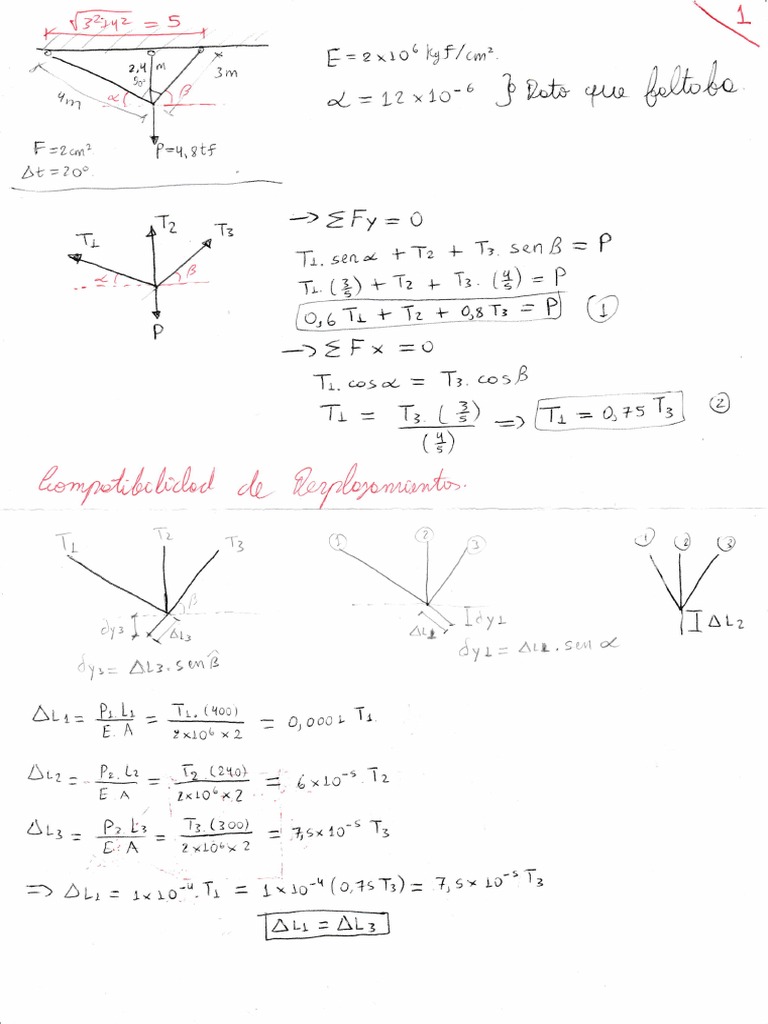 1
√3²+4² = 5
E = 2×10⁶ kgf/cm².
α = 12×10⁻⁶ } Dato que faltaba.
2,4 m
50°
3m
4m
α
β
F = 2cm²
P = 4,8tf
Δt = 20°.
T1
T2
T3
α
β
P
→ ΣFy = 0
T1. senα + T2 + T3. senβ = P
T1. (3/5) + T2 + T3. (4/5) = P
0,6 T1 + T2 + 0,8 T3 = P (1)
→ ΣFx = 0
T1. cosα = T3. cosβ
T1 = T3. (3/5) / (4/5) => T1 = 0,75 T3 (2)
Compatibilidad de Desplazamientos.
T1
T2
T3
β
dy3
ΔL3
dy3 = ΔL3. senβ̂
1
2
3
ΔL1
dy1
dy1 = ΔL1. senα
1
2
3
ΔL2
ΔL1 = P1. L1 / E. A = T1. (400) / 2×10⁶×2 = 0,0001 T1.
ΔL2 = P2. L2 / E A = T2. (240) / 2×10⁶×2 = 6×10⁻⁵. T2
ΔL3 = P2. L3 / E. A = T3. (300) / 2×10⁶×2 = 7,5×10⁻⁵ T3
=> ΔL1 = 1×10⁻⁴. T1 = 1×10⁻⁴ (0,75 T3) = 7,5×10⁻⁵ T3
ΔL1 = ΔL3